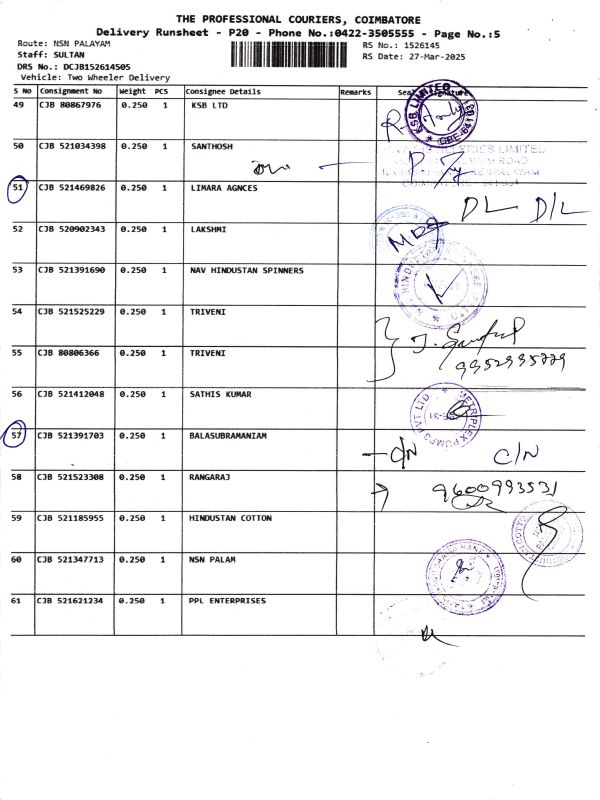 THE PROFESSIONAL COURIERS, COIMBATORE
Delivery Runsheet - P20 - Phone No.:0422-3505555 - Page No.:5
Route: NSN PALAYAM RS No.: 1526145
Staff: SULTAN RS Date: 27-Mar-2025
DRS No.: DCJB152614505
Vehicle: Two Wheeler Delivery
S No Consignment No Weight PCS Consignee Details Remarks
49 CJB 80867976 0.250 1 KSB LTD
KSB LIMITED
50 CJB 521034398 0.250 1 SANTHOSH
LIMITED
ROAD
51 CJB 521469826 0.250 1 LIMARA AGNCES
DL D/L
52 CJB 520902343 0.250 1 LAKSHMI
53 CJB 521391690 0.250 1 NAV HINDUSTAN SPINNERS
54 CJB 521525229 0.250 1 TRIVENI
55 CJB 80806366 0.250 1 TRIVENI
56 CJB 521412048 0.250 1 SATHIS KUMAR
METRIPLEX PUMPS PVT LTD
57 CJB 521391703 0.250 1 BALASUBRAMANIAM
C/N C/N
58 CJB 521523308 0.250 1 RANGARAJ
9600993531
59 CJB 521185955 0.250 1 HINDUSTAN COTTON
60 CJB 521347713 0.250 1 NSN PALAM
61 CJB 521621234 0.250 1 PPL ENTERPRISES